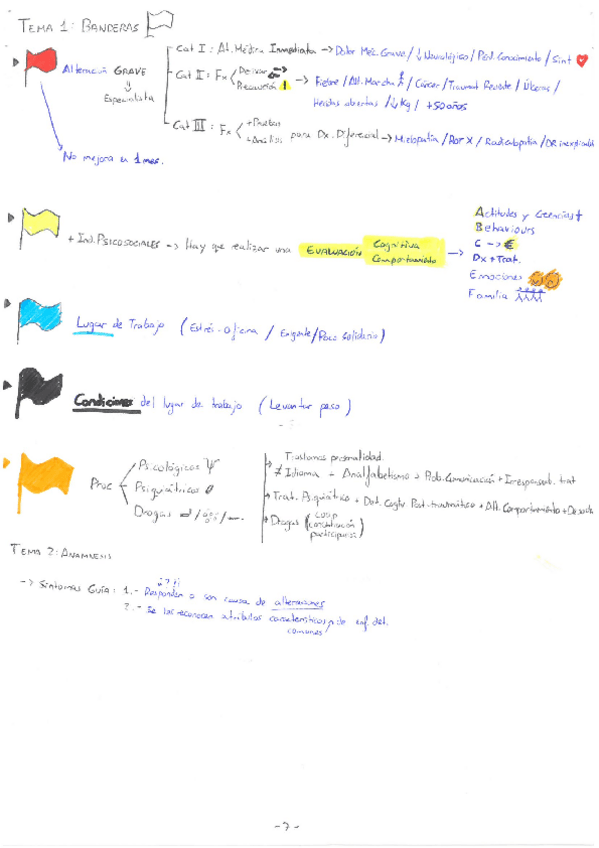 TEMA 1: BANDERAS
Cat I: At. Médica Inmediata → Dolor Mec. Grave / ↓ Neurológico / Perd. Conocimiento / Sint
Alteración GRAVE
Especialista
Cat II: Fx Derivar
Precaución ! → Fiebre / Alt. Marcha / Cáncer / Traumat Reciente / Úlceras /
Heridas abiertas / ↓Kg / +50 años
Cat III: Fx + Pruebas
+ Análisis para Dx. Diferencial → Mielopatía / Rot X / Radiculopatía / DR inexplicable
No mejora en 1 mes.
+ Ind. PSICOSOCIALES → Hay que realizar una EVALUACIÓN Cognitiva
Comportamiento →
Actitudes y Creencias
Behaviours
C → €
Dx + Trat.
Emociones
Familia
Lugar de Trabajo (Estrés - oficina / Exigente / Poco solidario)
Condiciones del lugar de trabajo (Levantar peso)
Proc
Psicológicos Ψ
Psiquiátricos
Drogas
Trastornos personalidad.
≠ Idioma + Analfabetismo + Prob. Comunicación + Irresponsab. trat
→ Trat. Psiquiátrico + Det. Cogtv Post-traumático + Alt. Comportamiento +
→ Drogas (coop
concentración
participación)
TEMA 2: ANAMNESIS
→ SÍNTOMAS GUÍA: 1.- Responden o son causa de alteraciones
2.- Se les reconocen atributos característicos de enf. det.
comunes
-7-